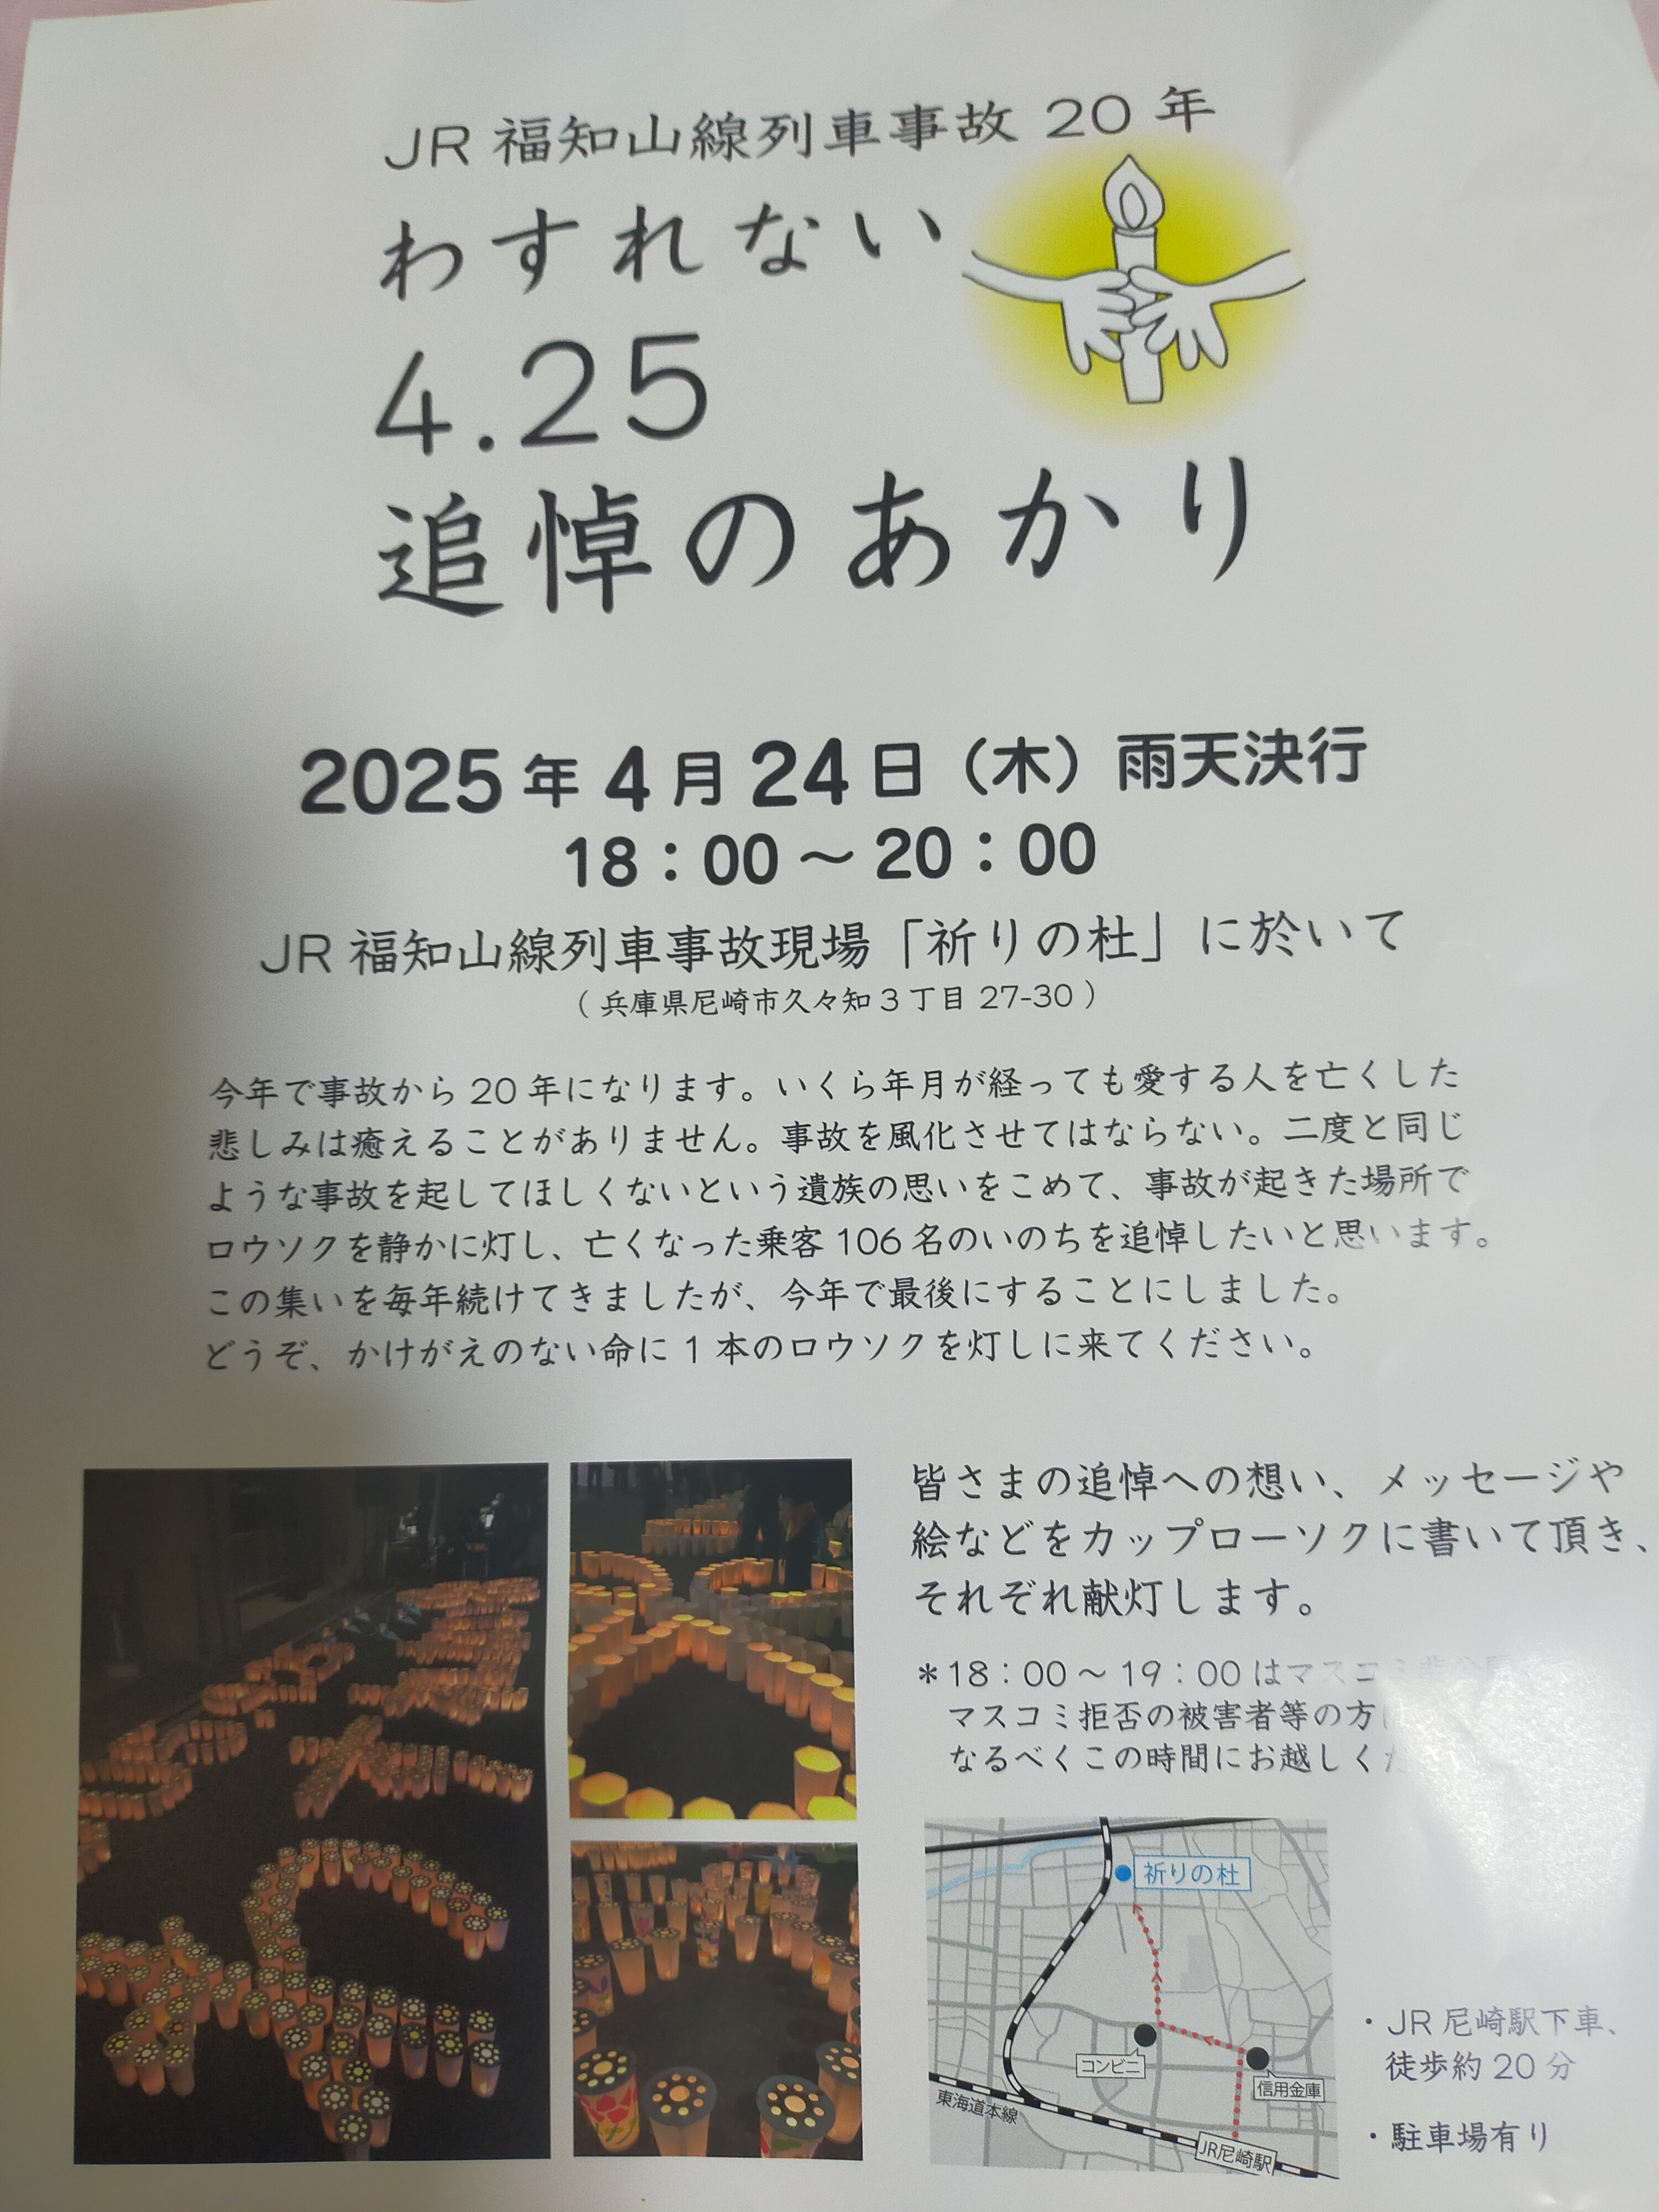 JR 福知山線列車事故 20 年
わすれない
4.25
追悼のあかり
2025 年 4 月 24 日（木）雨天決行
18：00 ～ 20：00
JR 福知山線列車事故現場「祈りの杜」に於いて
（ 兵庫県尼崎市久々知 3 丁目 27-30 ）
今年で事故から 20 年になります。いくら年月が経っても愛する人を亡くした
悲しみは癒えることがありません。事故を風化させてはならない。二度と同じ
ような事故を起してほしくないという遺族の思いをこめて、事故が起きた場所で
ロウソクを静かに灯し、亡くなった乗客 106 名のいのちを追悼したいと思います。
この集いを毎年続けてきましたが、今年で最後にすることにしました。
どうぞ、かけがえのない命に 1 本のロウソクを灯しに来てください。
皆さまの追悼への想い、メッセージや
絵などをカップローソクに書いて頂き、
それぞれ献灯します。
＊18：00 ～ 19：00 はマスコミ
マスコミ拒否の被害者等の方
なるべくこの時間にお越しく
祈りの杜
コンビニ
信用金庫
東海道本線
JR尼崎駅
・JR 尼崎駅下車、
徒歩約 20 分
・駐車場有り